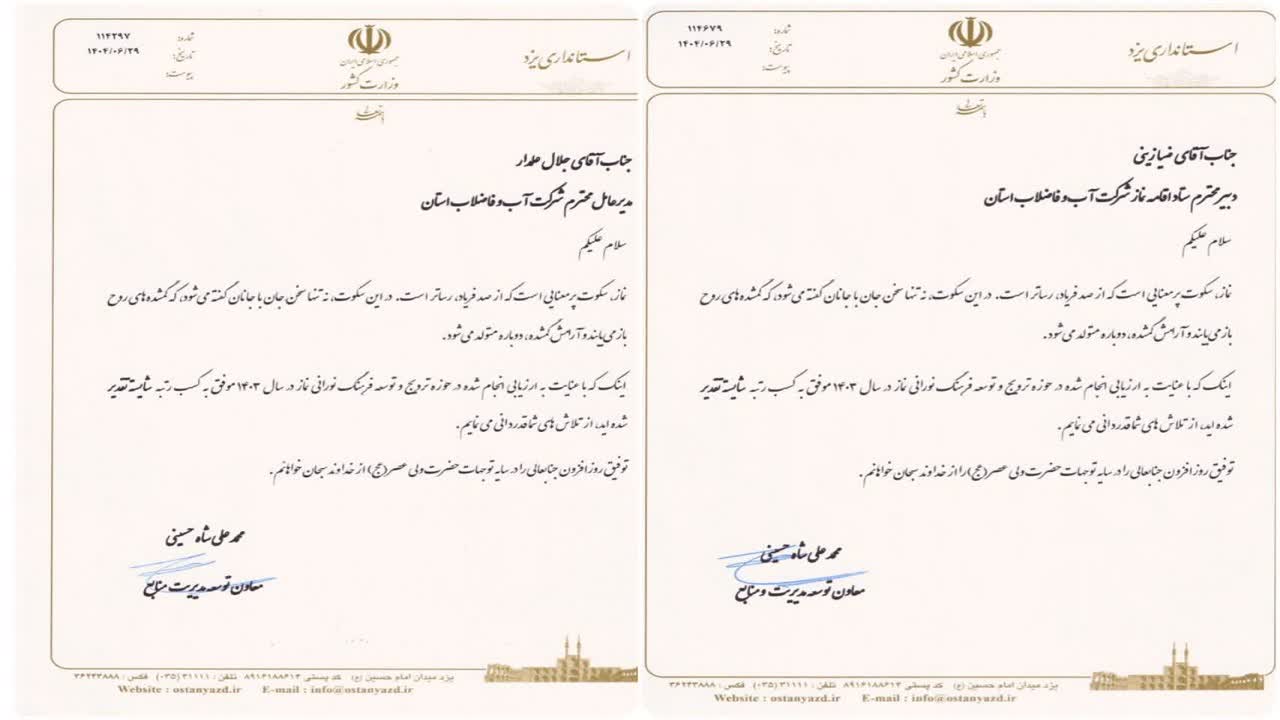 استانداری یزد
جمهوری اسلامی ایران
وزارت کشور
شماره: ۱۱۴۶۷۹
تاریخ: ۱۴۰۴/۰۶/۲۹
پیوست:
بسمه تعالی
جناب آقای ضیازینی
دبیر محترم ستاد اقامه نماز شرکت آب و فاضلاب استان
سلام علیکم
نماز، سکوت پرمعنایی است که از صد فریاد، رساتر است. در این سکوت، نه تنها سخن جان با جانان گفته می‌شود، که گمشده های روح
باز می‌یابند و آرامش گمشده، دوباره متولد می‌شود.
اینک که با عنایت به ارزیابی انجام شده در حوزه ترویج و توسعه فرهنگ نورانی نماز در سال ۱۴۰۳ موفق به کسب رتبه شایسته تقدیر
شده اید، از تلاش های شما قدردانی می نمایم.
توفیق روز افزون جنابعالی را در سایه توجهات حضرت ولی عصر(عج) را از خداوند سبحان خواهانم.
محمد علی شاه حسینی
معاون توسعه مدیریت و منابع
یزد میدان امام حسین (ع) کد پستی ۸۹۱۶۱۸۸۶۱۴ تلفن : ۳۱۱۱۱ (۰۳۵) فکس : ۳۶۲۴۳۸۸۸
Website : ostanyazd.ir E-mail : info@ostanyazd.ir
استانداری یزد
جمهوری اسلامی ایران
وزارت کشور
شماره: ۱۱۴۲۹۷
تاریخ: ۱۴۰۴/۰۶/۲۹
پیوست:
بسمه تعالی
جناب آقای جلال علمدار
مدیرعامل محترم شرکت آب و فاضلاب استان
سلام علیکم
نماز، سکوت پرمعنایی است که از صد فریاد، رساتر است. در این سکوت، نه تنها سخن جان با جانان گفته می‌شود، که گمشده های روح
باز می‌یابند و آرامش گمشده، دوباره متولد می‌شود.
اینک که با عنایت به ارزیابی انجام شده در حوزه ترویج و توسعه فرهنگ نورانی نماز در سال ۱۴۰۳ موفق به کسب رتبه شایسته تقدیر
شده اید، از تلاش های شما قدردانی می نمایم.
توفیق روز افزون جنابعالی را در سایه توجهات حضرت ولی عصر(عج) از خداوند سبحان خواهانم.
محمد علی شاه حسینی
معاون توسعه مدیریت منابع
یزد میدان امام حسین (ع) کد پستی ۸۹۱۶۱۸۸۶۱۴ تلفن : ۳۱۱۱۱ (۰۳۵) فکس : ۳۶۲۴۳۸۸۸
Website : ostanyazd.ir E-mail : info@ostanyazd.ir